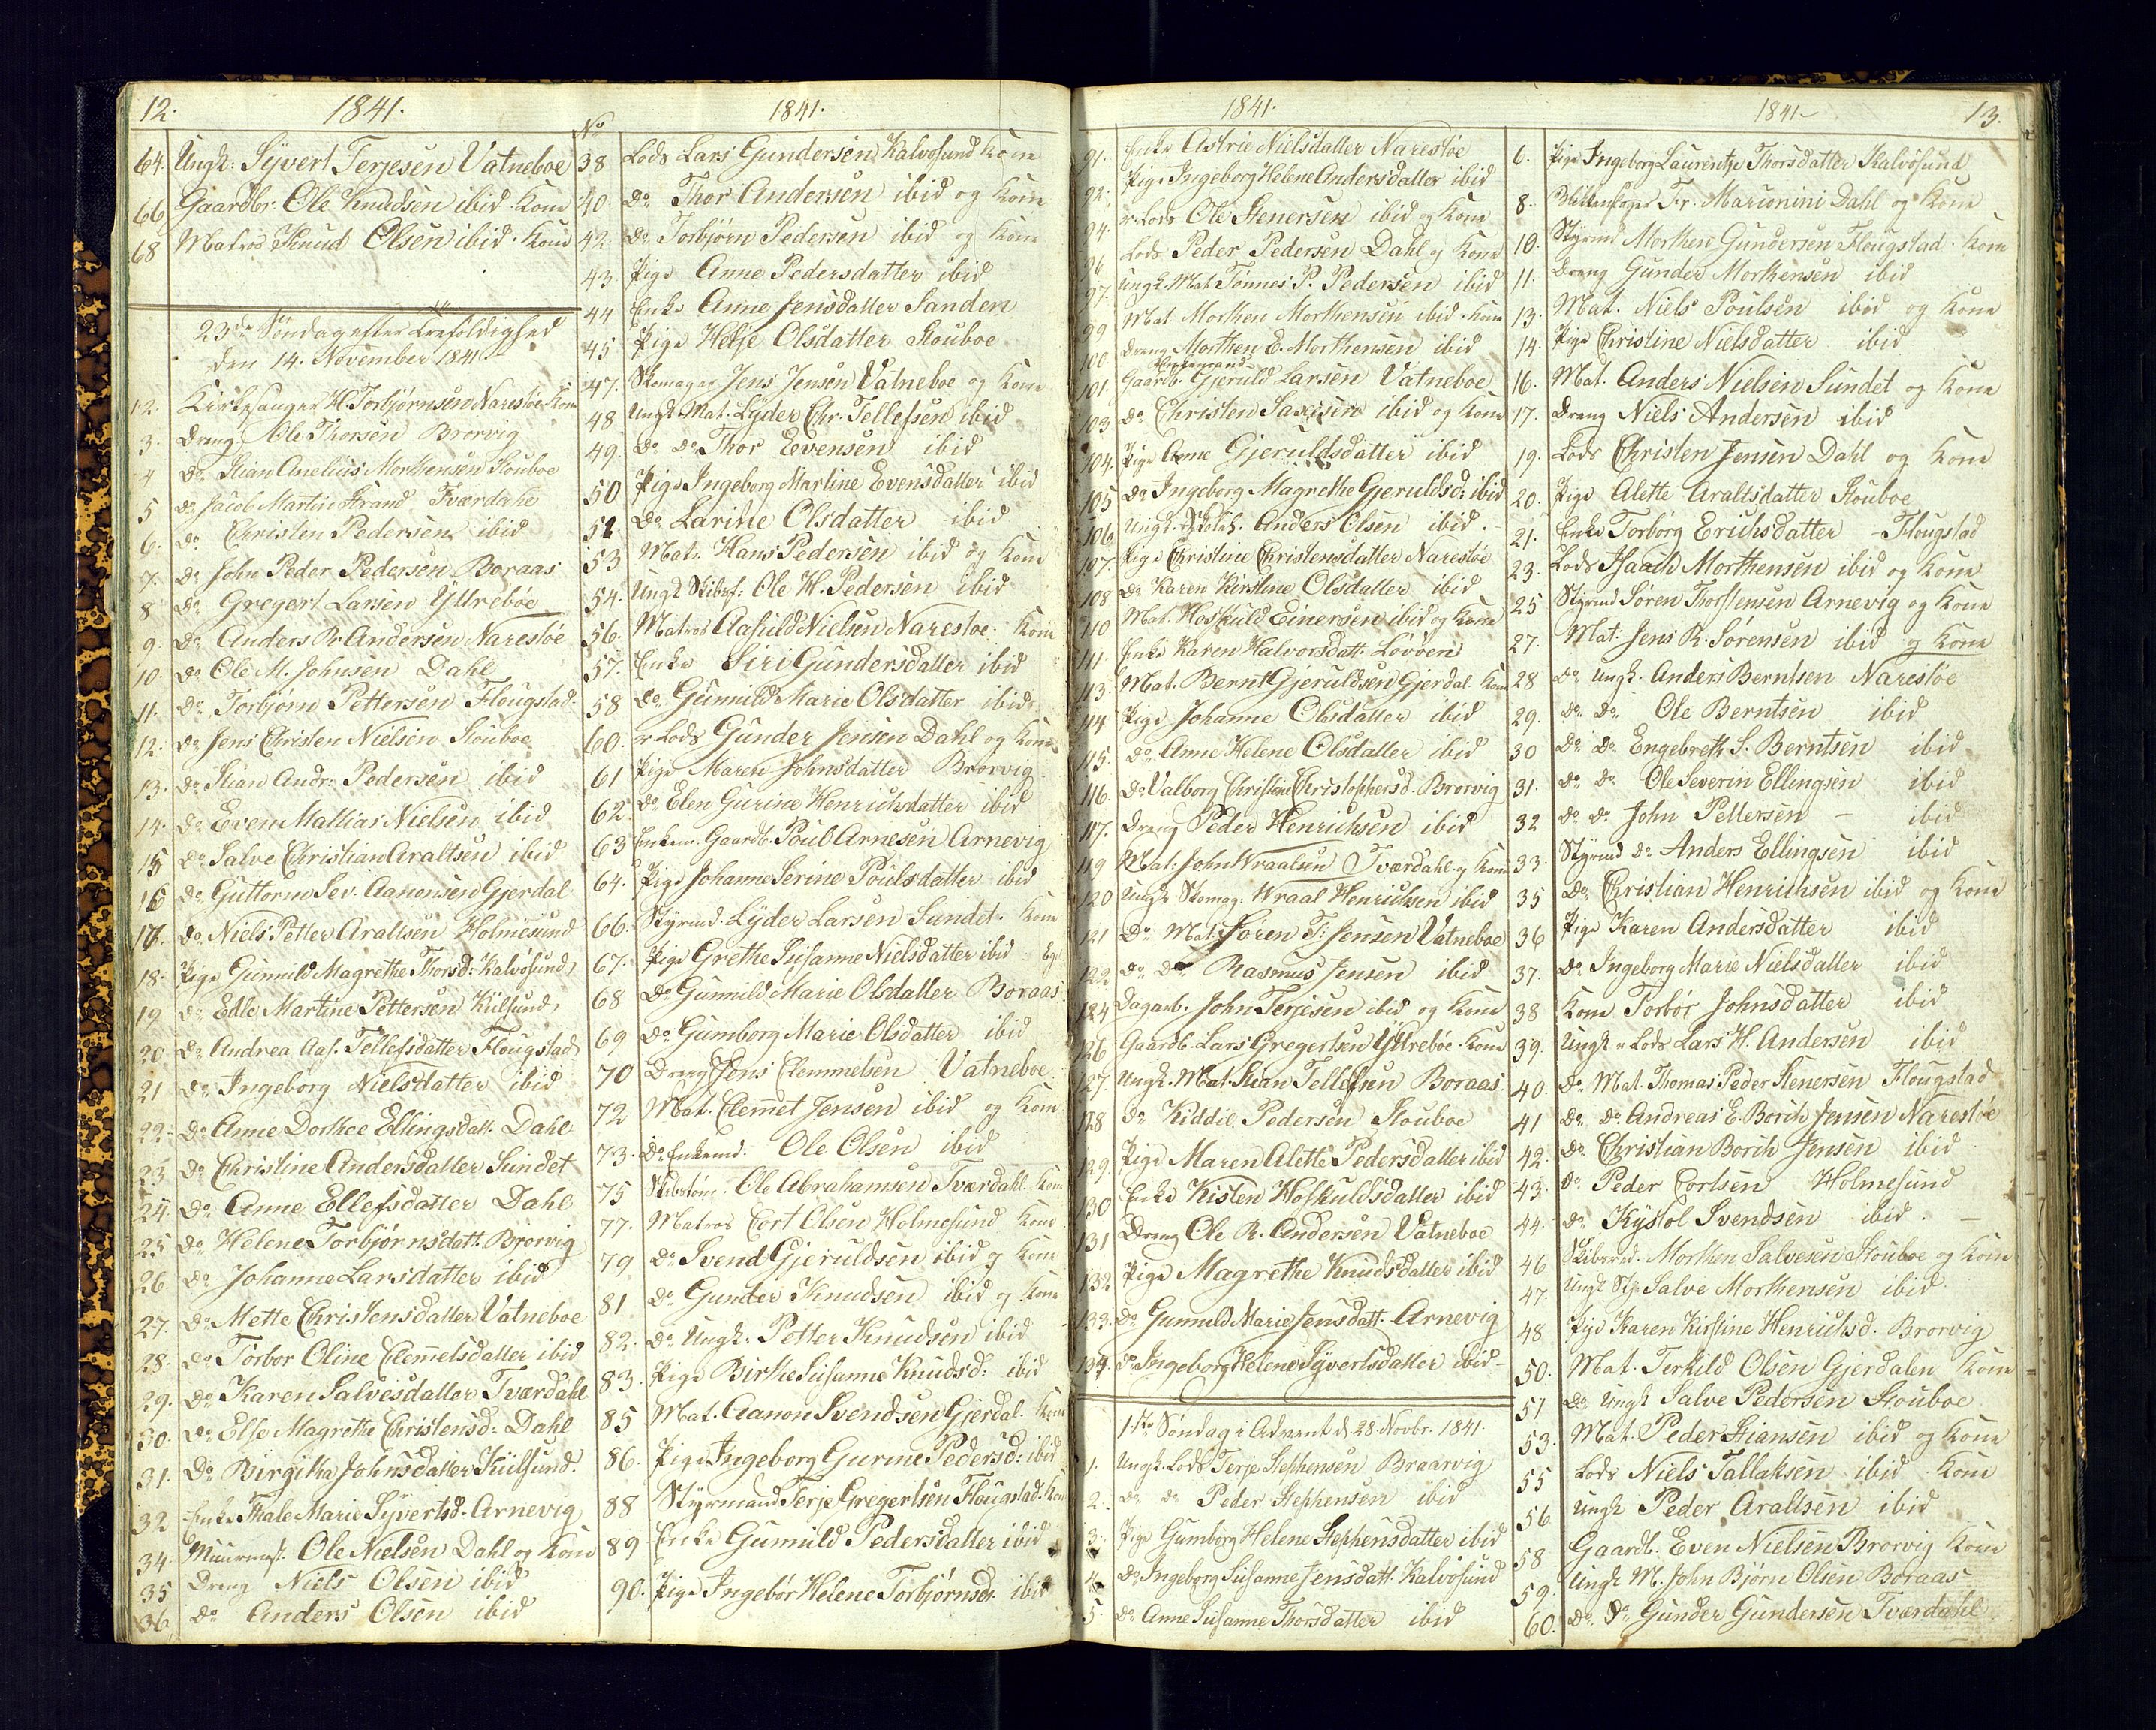 12. 1841. 1841.
64. Ungk: Syvert Terjesen Vatneboe
66 Gaardbr. Ole Knudsen ibid Kone
68 Matros Knud Olsen ibid. Kone
23de Søndag efter Trefoldighed
den 14. November 1841
2. Kirkesanger H. Torbjørnsen Narestøe Kone
3. Dreng Ole Thorsen Brorvig
4 Do Stian Anelius Morthensen Stouboe
5 Do Jacob Martin Strand Tværdahl
6. Do Christen Pedersen ibid
7. Do John Peder Pedersen Boraas
8 Do Gregert Larsen Yttrebøe
9. Do Anders R. Andersen Narestøe
10. Do Ole M. Johnsen Dahl
11. Do Torbjørn Pettersen Flougstad
12. Do Jens Christen Nielsen Stouboe
13. Do Stian Andr: Pedersen ibid
14. Do Even Mathias Nielsen ibid
15 Do Salve Christian Araltsen ibid
16 Do Guttorm Sev. Aanonsen Gjerdal
17. Do Niels Petter Araltsen Holmesund
18. Pige Gunnild Magrethe Thorsd: Kalvøsund
19 Do Edle Martine Pettersen Kulsund
20. Do Andrea Aas. Tellefsdatter Flougstad
21 Do Ingeborg Nielsdatter ibid
22. Do Anne Dorthea Ellingsdatt. Dahl
23 Do Christine Andersdatter Sundet
24. Do Anne Ellefsdatter Dahl
25 Do Helene Torbjørnsdatt. Brorvig
26. Do Johanne Larsdatter ibid
27. Do Mette Christensdatter Vatneboe
28. Do Torbor Oline Clemmetsdatter ibid
29. Do Karen Salvesdatter Tværdahl
30. Do Else Magrethe Christensd: Dahl
31. Do Birgitha Johnsdatter Kulsund.
32 Enke Thale Marie Syvertsd. Arnevig
34. Muurmest. Ole Nielsen Dahl og Kone
35 Dreng Niels Olsen ibid
36. Do Anders Olsen ibid
No
38 Lods Lars Gundersen Kalvøsund Kone
40. Do Thor Andersen ibid og Kone
42. Do Torbjørn Pedersen ibid og Kone
43. Pige Anne Pedersdatter ibid
44 Enke Anne Jensdatter Sanden
45 Pige Helje Olsdatter Stouboe
47. Skomager Jens Jensen Vatneboe og Kone
48 Ungk. Mat. Lyder Chr. Tellefsen ibid
49. Do Do Thor Evensen ibid
50 Pige Ingeborg Martine Evensdatter ibid
51. Do Larine Olsdatter ibid
53 Mat. Hans Pedersen ibid og Kone
54. Ungk Skibsf: Ole H. Pedersen ibid
56. Matros Aasuld Nielsen Narestøe. Kone
57. Enke Siri Gundersdatter ibid
58 Do Gunnild Marie Olsdatter ibid
60. r. Lods Gunder Jensen Dahl og Kone
61 Pige Maren Johnsdatter Brorvig
62. Do Elen Gurine Henrichsdatter ibid
63 Enkem. Gaardb. Poul Arnesen Arnevig
64. Pige Johanne Serine Poulsdatter ibid
66. Styrmd. Lyder Larsen Sundet Kone
67. Pige Grethe Susanne Nielsdatter ibid
68 Do Gunnild Marie Olsdatter Boraas
69 Do Gumborg Marie Olsdatter ibid
70 Dreng Jens Clemmetsen Vatneboe
72 Mat. Clemmet Jensen ibid og Kone
73. Do Enkemd. Ole Olsen ibid
75 Skibstøm. Ole Abrahamsen Tværdahl. Kone
77. Matros Cort Olsen Holmesund Kone
79 Do Svend Gjeruldsen ibid og Kone
81 Do Gunder Knudsen ibid og Kone
82. Do Ungk. Petter Knudsen ibid
83. Pige Birthe Susanne Knudsd: ibid
85 Mat. Aanon Svendsen Gjerdal. Kone
86. Pige Ingeborg Gurine Pedersd: ibid
88 Styrmand Terje Gregertsen Flougstad. Kone
89 Enke Gunnild Pedersdatter ibid
90. Pige Ingebor Helene Torbjørnsd. ibid
1841. 1841 13.
91. Enke Astrie Nielsdatter Narestøe
92. Pige Ingeborg Helene Andersdatter ibid
94. r. Lods Ole Stenersen ibid og Kone
96 Lods Peder Pedersen Dahl og Kone
97. Ungk. Mat. Tønnes P. Pedersen ibid
99 Mat. Morthen Morthensen ibid Kone
100. Dreng Morthen E. Morthensen ibid
Enkemand
101. Gaardb. Gjeruld Larsen Vatneboe
103 Do Christen Saxisen ibid og Kone
104. Pige Anne Gjeruldsdatter ibid
105 Do Ingeborg Magrethe Gjeruldsd: ibid
106 Ungk. Anders Olsen ibid.
107. Pige Christine Christensdatter Narestøe
108 Do Karen Kirstine Olsdatter ibid
110 Mat. Hoskuld Einersen ibid og Kone
111. Enke Karen Halvorsdatt: Løvøen
113. Mat. Bernt Gjeruldsen Gjerdal. Kone
114 Pige Johanne Olsdatter ibid
115. Do Anne Helene Olsdatter ibid
116. Do Valborg Christine Christophersd. Brorvig
117. Dreng Peder Henrichsen ibid
119 Mat: John Wraalsen Tværdahl og Kone
120 Ungk Skomag. Wraal Henrichsen ibid
121 Do Mat. Søren T. Jensen Vatneboe
122 Do Do Rasmus Jensen ibid
124 Dagarb. John Terjesen ibid og Kone
126 Gaardb. Lars Gregertsen Yttrebøe. Kone
127. Ungk. Mat. Stian Tellefsen Boraas
128 Do Kiddil Pedersen Stouboe
129. Pige Maren Alette Pedersdatter ibid
130 Enke Kisten Hoskuldsdatter ibid
131 Dreng Ole R. Andersen Vatneboe
132 Pige Magrethe Knudsdatter ibid
133. Do Gunnuld Marie Jensdatt. Arnevig
134. Do Ingeborg Helene Syvertsdatter ibid
1ste Søndag i Advent d. 28. Novbr. 1841.
1. Ungk. Lods Terje Stephensen Braarvig
2. Do Do Peder Stephensen ibid
3. Pige Gumborg Helene Stephensdatter ibid
4. Do Ingeborg Susanne Jensdatt. Kalvøsund
5. Do Anne Susanne Thorsdatter ibid
6. Pige Ingeborg Laurentze Thorsdatter Kalvøsund
8. Fr. Marionini Dahl og Kone
10. Styrmd Morthen Gundersen Flougstad. Kone
11. Dreng Gunder Morthensen ibid
13. Mat. Niels Poulsen ibid og Kone
14. Pige Christine Nielsdatter ibid
16. Mat. Anders Nielsen Sundet og Kone
17. Dreng Niels Andersen ibid
19. Lods Christen Jensen Dahl og Kone
20. Pige Alette Araltsdatter Stouboe
21. Enke Torborg Erichsdatter - Flougstad
23. Lods Isaach Morthensen ibid og Kone
25 Styrmd Søren Thorstensen Arnevig og Kone
27. Mat: Jens R. Sørensen ibid og Kone
28 Do Ungk. Anders Berntsen Narestøe
29. Do Do Ole Berntsen ibid
30 Do Do Engebreth S. Berntsen ibid
31. Do Do Ole Severin Ellingsen ibid
32 Do Do John Pettersen - ibid
33. Styrmd Do Anders Ellingsen ibid
35 Do Christian Henrichsen ibid og Kone
36 Pige Karen Andersdatter ibid
37. Do Ingeborg Marie Nielsdatter ibid
38 Kone Torbor Johnsdatter ibid
39. Ungk r Lods Lars H. Andersen ibid
40. Do Mat. Thomas Peder Stenersen Flougstad
41 Do Do Andreas E. Borch Jensen Narestøe
42. Do Christian Borch Jensen ibid
43. Do Peder Cortsen Holmesund
44. Do Kystol Svendsen ibid.
46 Morthen Salvesen Stouboe og Kone
47. Ungk Sty. Salve Morthensen ibid
48 Pige Karen Kirstine Henrichsd. Brorvig
50. Mat. Terkild Olsen Gjerdalen Kone
51 Do Ungk Salve Pedersen Stouboe
53. Mat. Peder Stiansen ibid og Kone
55 Lods Niels Tallaksen ibid Kone
56 Ungk Peder Araltsen ibid
58 Gaardb. Even Nielsen Brorvig Kone
59. Ungk M. John Bjørn Olsen Boraas
60. Do Do Gunder Gundersen Tværdahl